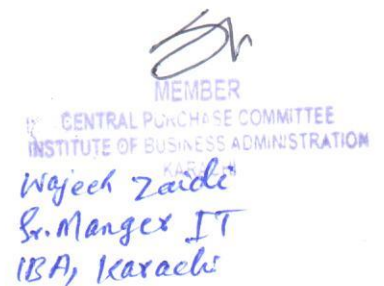 MEMBER
CENTRAL PURCHASE COMMITTEE
INSTITUTE OF BUSINESS ADMINISTRATION
KARACHI
Wajeeh Zaidi
Sr. Manger IT
IBA, Karachi